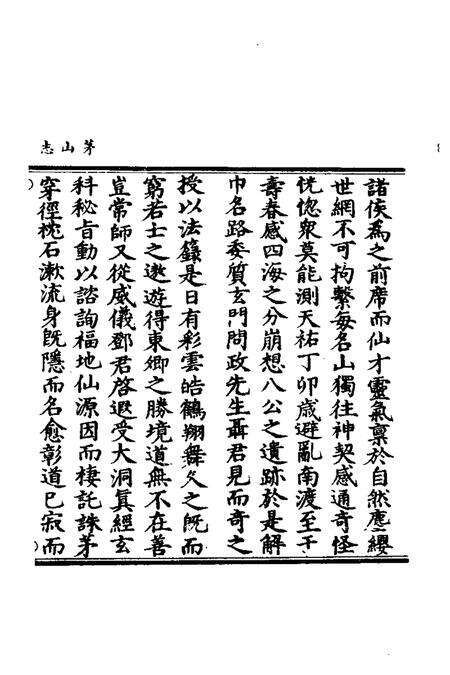 茅山志
諸侯為之前席而仙才靈氣稟於自然塵纓
世網不可拘繫每名山獨往神契感通奇怪
恍惚衆莫能測天祐丁卯歳避亂南渡至于
壽春感四海之分崩想八公之遺跡於是解
巾名路委質玄門問政先生聶君見而奇之
授以法籙是日有彩雲皓鶴翔舞久之既而
窮若士之遨遊得東鄉之勝境道無不在善
豈常師又從威儀鄧君啓遐受大洞真經玄
科秘旨動以諮詢福地仙源因而棲託誅茅
穿徑枕石漱流身既隱而名愈彰道已寂而